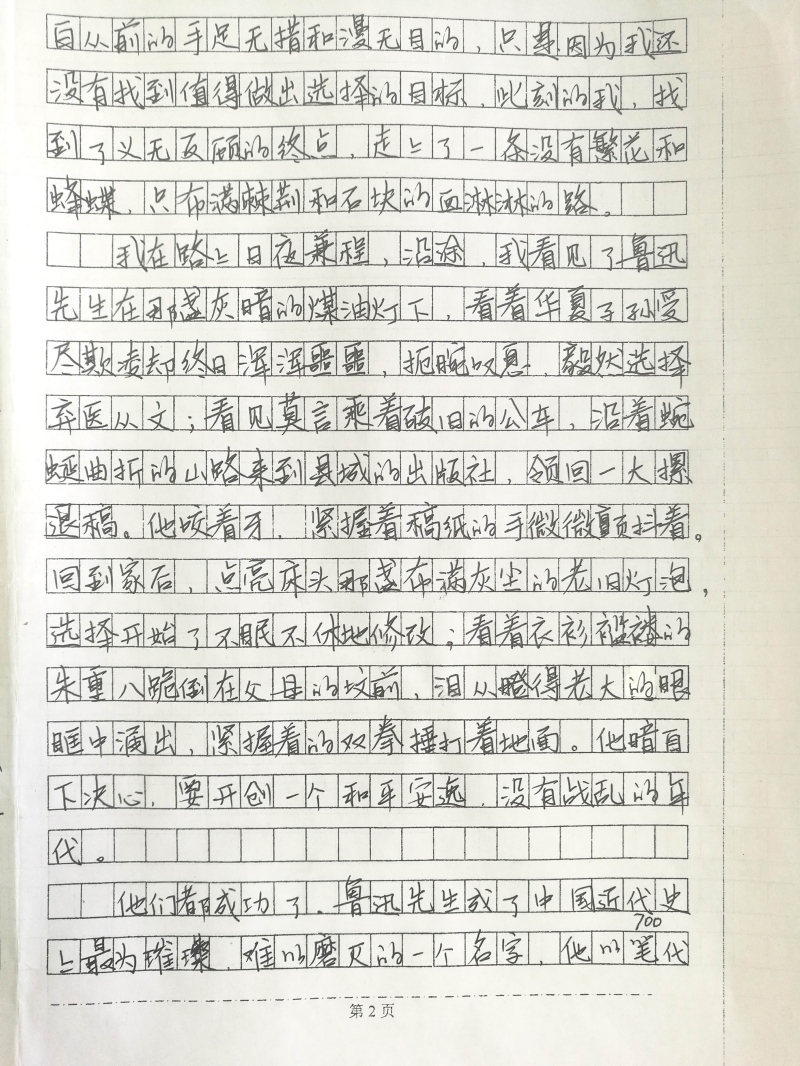 自从前的手足无措和漫无目的，只是因为我还
没有找到值得做出选择的目标，此刻的我，找
到了义无反顾的终点，走上了一条没有繁花和
蜂蝶，只布满棘荆和石块的血淋淋的路。
我在路上日夜兼程，沿途，我看见了鲁迅
先生在那盏灰暗的煤油灯下，看着华夏子孙受
尽欺凌却终日浑浑噩噩，扼腕叹息，毅然选择
弃医从文；看见莫言乘着破旧的公车，沿着蜿
蜒曲折的山路来到县城的出版社，领回一大摞
退稿。他咬着牙，紧握着稿纸的手微微颤抖着。
回到家后，点亮床头那盏布满灰尘的老旧灯泡，
选择开始了不眠不休地修改；看着衣衫褴褛的
朱重八跪倒在父母的坟前，泪从瞪得老大的眼
眶中涌出，紧握着的双拳捶打着地面。他暗自
下决心，要开创一个和平安逸，没有战乱的年
代。
他们都成功了，鲁迅先生成了中国近代史
700
上最为璀璨，难以磨灭的一个名字，他以笔代
第 2 页